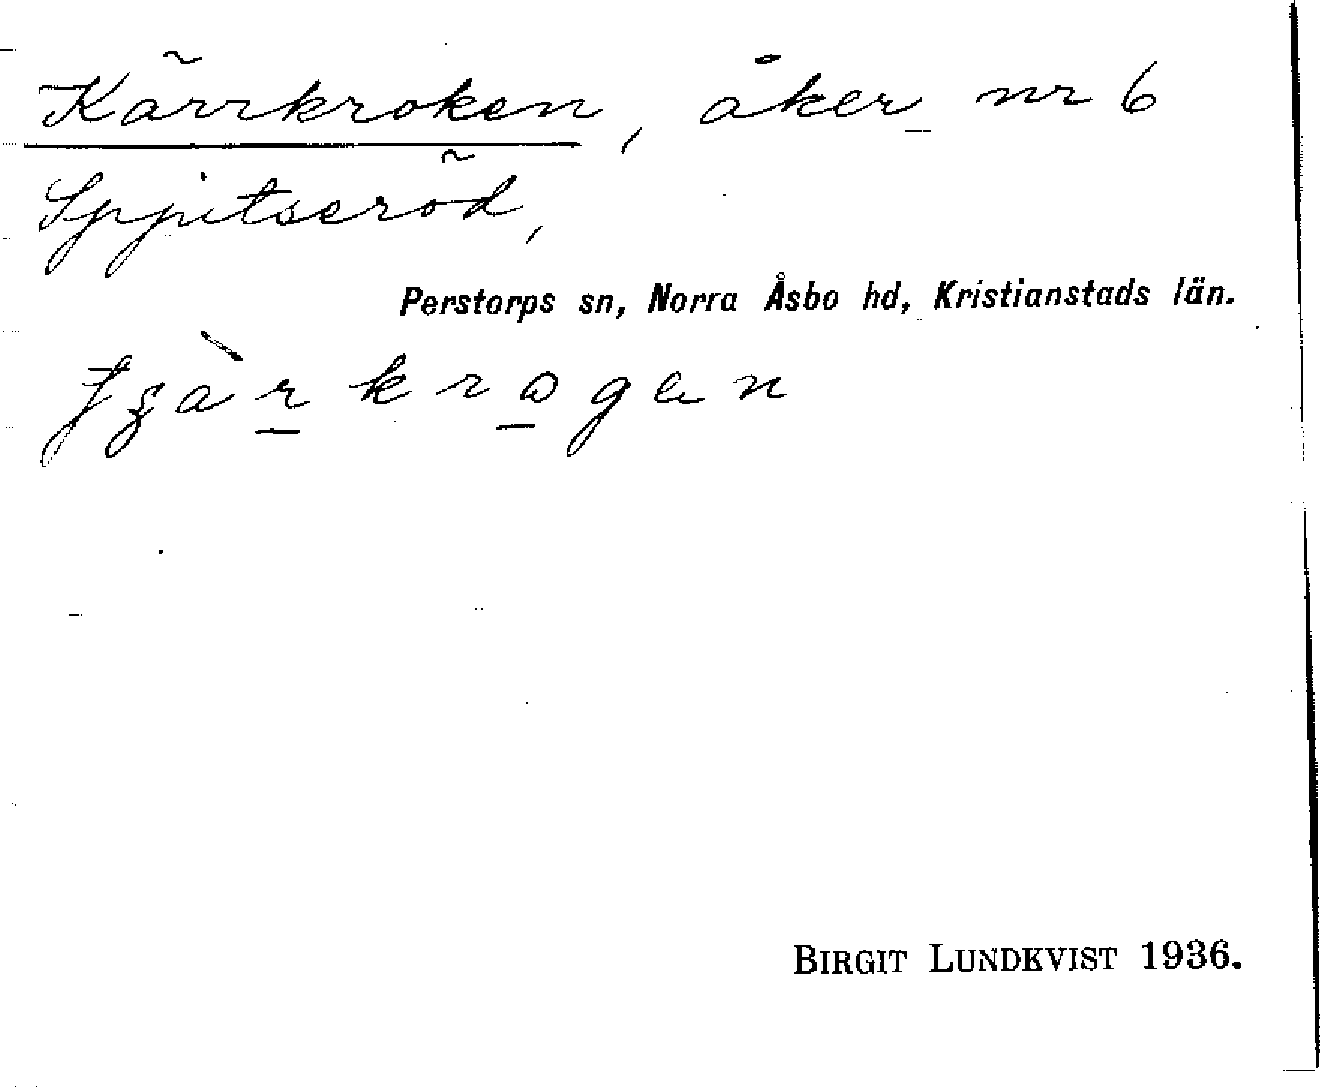 Kärrkroken, åker nr 6
Spjutseröd,
Perstorps sn, Norra Åsbo hd, Kristianstads län.
BIRGIT LUNDKVIST 1936.